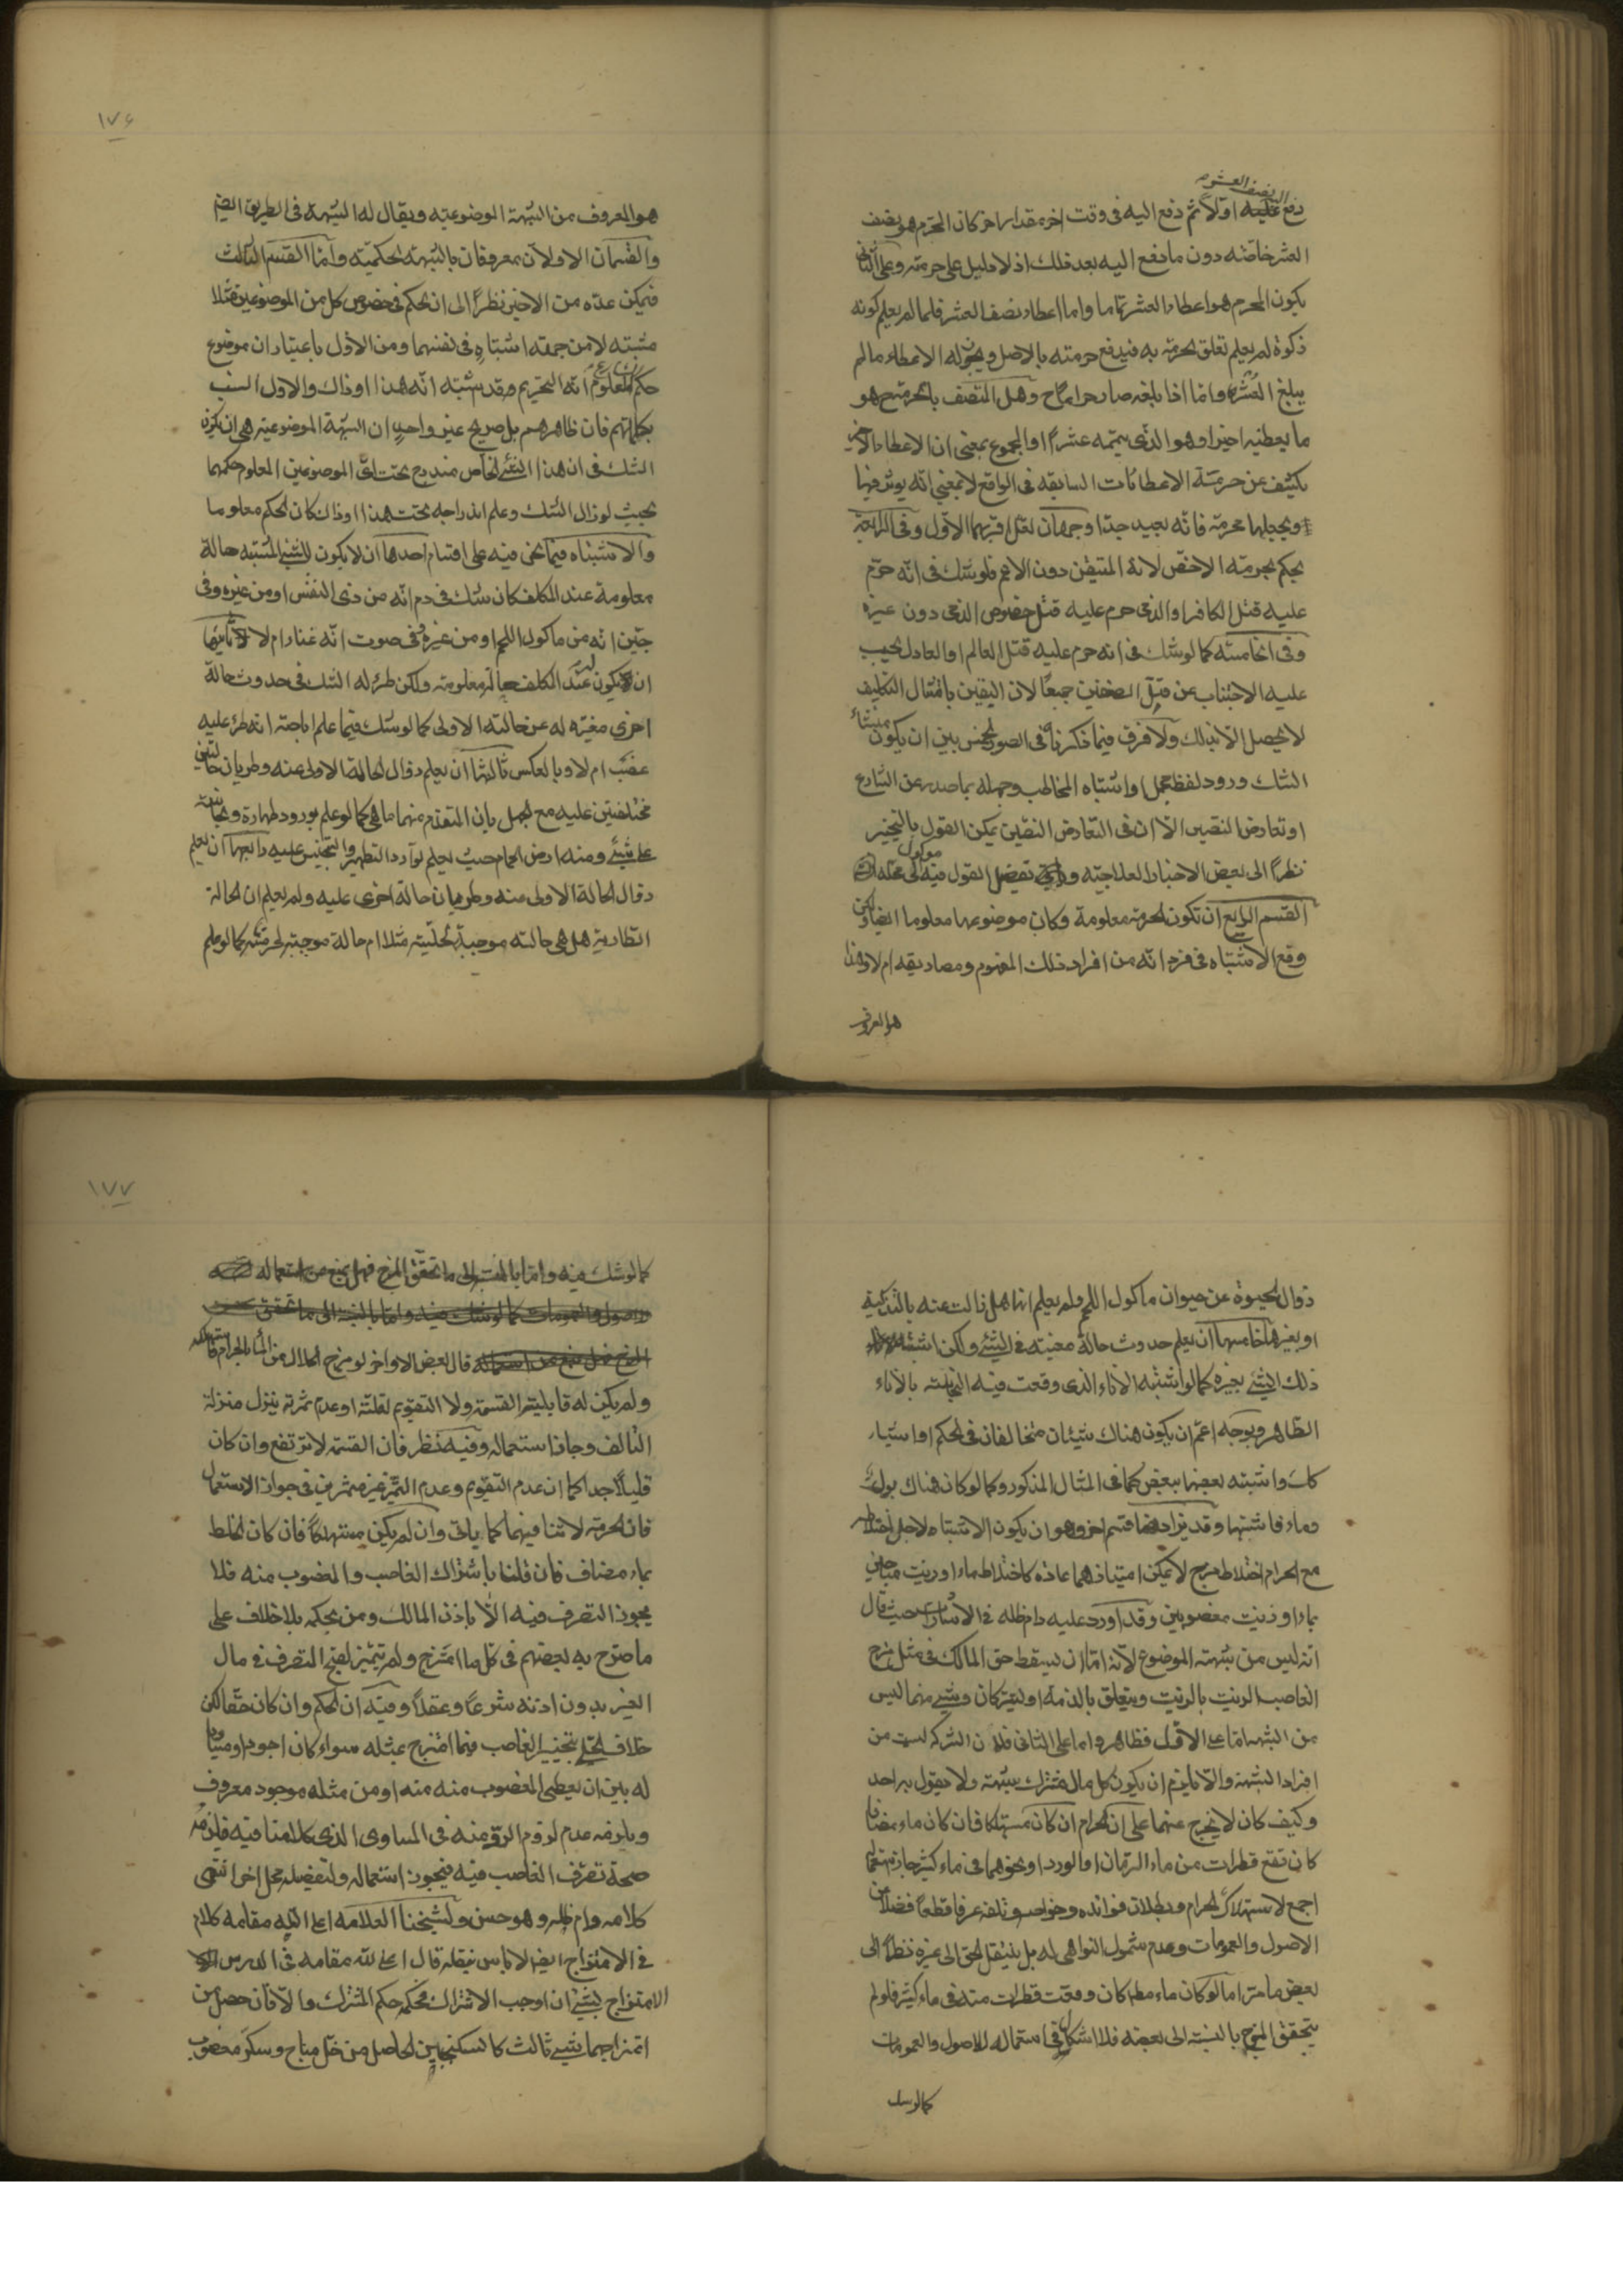 دفع اليه نصف العشر اولاً ثم دفع اليه فى وقت اخر مقدار اخر كان المحرم هو نصف
العشر خاصّة دون ما دفع اليه بعد ذلك اذ لا دليل على حرمته وعلى الثانى
يكون المحرم هو اعطاء العشر تماما واما اعطاء نصف العشر فلما لم يعلم كونه
ذكوة لم يعلم تعلق الحرمة به فيدفع حرمته بالاصل ويجوز له الاعطاء مالم
يبلغ العُشر واما اذا بلغه صار حراما ح وهل المتصف بالحرمة ح هو
ما يعطيه اخيرا وهو الذى يتمه عشراً او المجموع بمعنى ان الاعطاء الاخير
يكشف عن حرمة الاعطائات السابقه فى الواقع لا بمعنى انه يوثر فيها
ويجعلها محرمة فانه بعيد جدا وجهان لعل اقربهما الاول وفى الرابعة
يحكم بحرمة الاخصّ لانه المتيقن دون الاعم فلو شك فى انه حرّم
عليه قتل الكافر او الذى حرم عليه قتل خصوص الذمى دون غيره
وفى الخامسة كما لو شك فى انه حرم عليه قتل العالم او العادل يجب
عليه الاجتناب عن قتل الصنفين جميعًا لان اليقين بامتثال التكليف
لا يحصل الا بذلك ولا فرق فيما ذكرنا فى الصور الخمس بين ان يكون منشأ
الشك ورود لفظ مجمل او اشتباه المخاطب وجهله بما صدر عن الشارع
او تعارض النصين الّا ان فى التعارض النصّين يمكن القول بالتخيير
نظراً الى بعض الاخبار العلاجيّه وتفصيل القول فيه موكول الى محله
القسم الرابع ان تكون الحرمة معلومة وكان موضوعها معلوما ايضا ولكن
وقع الاشتباه فى فرد انّه من افراد ذلك المفهوم ومصاديقه ام لا وهذا
هو المعروف
١٧۶
هو المعروف من الشبهة الموضوعيّه ويقال له الشبهة فى الطريق ايضا
والقسمان الاولان معروفان بالشبهة الحكميّه وامّا القسم الثالث
فيمكن عدّه من الاخير نظراً الى ان الحكم فى خصوص كل من الموضوعين مثلا
مشتبه لا من جهة اشتباهٍ فى نفسهما ومن الاول باعتبار ان موضوع
حكم المعلوم انّه التحريم وقد يشتبه انّه هذا او ذاك والاول انسب
بكلماتهم فان ظاهرهم بل صريح غير واحدٍ ان الشبهة الموضوعية هى ان يكون
الشك فى ان هذا الشئ الخاص مندرج تحت اىّ الموضوعين المعلوم حكمهما
بحيث لو زال الشك وعلم اندراجه تحت هذا او ذاك كان الحكم معلوما
والاشتباه فيما نحن فيه على اقسام احدها ان لا يكون للشئ المشتبه حالة
معلومة عند المكلف كان شك فى دم انّه من ذى النفس او من غيره وفى
جبن انّه من ماكول اللحم او من غيره وفى صوت انّه غناء ام لا ثانيها
ان يكون عند المكلف حالة معلومة ولكن طرء له الشك فى حدوث حالة
اخرى مغيّره له عن حالته الاولى كما لو شك فيما علم اباحته انه طرء عليه
غصب ام لا وبالعكس ثالثها ان يعلم زوال الحالة الاولى عنه وطريان حالتين
مختلفتين عليه مع الجهل بان المتقدم منهما ما هى كما لو علم بورود طهارة ونجاسة
على شئ ومنه ارض الحمام حيث يعلم توارد التطهير والتنجيس عليه رابعها ان يعلم
زوال الحالة الاولى منه وطريان حالة اخرى عليه ولم يعلم ان الحالة
الطارية هل هى حالته موجبة لحليّته مثلا ام حالة موجبة لحرمته كما لو علم
زوال الحيوة عن حيوان ماكول اللحم ولم يعلم انها هل زالت عنه بالتذكية
او بغيرها خامسها ان يعلم حدوث حالة معينه فى الشئ ولكن اشتبه
ذلك الشئ بغيره كما لو اشتبه الاناء الذى وقعت فيه النجاسة بالاناء
الطاهر وبوجه اعم ان يكون هناك شيئان متخالفان فى الحكم او اشياء
كك واشتبه بعضها ببعض كما فى المثال المذكور وكما لو كان هناك بول
وماء فاشتبها وقد يزاد قسم اخر وهو ان يكون الاشتباه لاجل اختلاط
مع الحرام اختلاط مزج لا يمكن امتيازهما عادة كاختلاط ماء او زيت مباحين
بماء او زيت مغصوبين وقد اورد عليه دام ظله فى الاشارات حيث قال
انه ليس من شبهة الموضوع لانّه امّا ان يسقط حق المالك فى مثل مزج
الغاصب الزيت بالزيت ويتعلق بالذمة او يشتركان وشئ منهما ليس
من الشبهه امّا على الاوّل فظاهر واما على الثانى فلان الشركه ليست من
افراد الشبهة والّا يلزم ان يكون كل مال مشترك شبهة ولا يقول به احد
وكيف كان لا يخرج عنهما على ان الحرام ان كان مستهلكا فان كان ماء مضافا
كان تقع قطرات من ماء الرمان او الورد او نحوهما فى ماء كثير جاز استعماله
اجمع لاستهلاك الحرام وبطلان فوائده وخواصه وتلفه عرفا قطعاً فضلا من
الاصول والعمومات وعدم شمول النواهى له بل ينتقل الحق الى غيره نظراً الى
بعض ما مرّ اما لو كان ماء مطلقا كان وقعت قطرات منه فى ماء كثير فلو لم
يتحقق المزج بالنسبة الى بعضه فلا اشكال فى استعماله للاصول والعمومات
كما لو شك
١٧٧
كما لو شك فيه وامّا بالنسبة الى ما تحقق المزج فهل يمنع من استعماله
قال بعض الاواخر لو مزج الحلال من الماء بالحرام
ولم يكن له قابلية القسمة ولا التقويم لقلته او عدم ثمرته ينزل منزلة
التالف وجاز استعماله وفيه نظر فان القسمة لا ترتفع وان كان
قليلاً جدا كما ان عدم التقويم وعدم التميّز غير مثمرين فى جواز الاستعمال
فان الحرمة لا تنافيهما كما ياتى وان لم يكن مستهلكاً فان كان الخلط
بماء مضاف فان قلنا باشتراك الغاصب والمغصوب منه فلا
يجوز التصرف فيه الّا باذن المالك ومن بحكمه بلا خلاف على
ما صرّح به بعضهم فى كل ما امتزج ولم يتميّز لقبح التصرف فى مال
الغير بدون اذنه شرعاً وعقلاً وفيه ان الحكم وان كان حقّا لكن
خلاف الحلّى بتخيير الغاصب فيما امتزج بمثله سواء كان اجود او مساويا
له بين ان يعطى المغصوب منه منه او من مثله موجود معروف
ويلزمه عدم لزوم الردّ منه فى المساوى الذى كلامنا فيه فلازمه
صحة تصرّف الغاصب فيه فيجوز استعماله ولتفصيله محل اخر انتهى
كلامه دام ظله وهو حسن ولشيخنا العلامه اعلى الله مقامه كلام
فى الامتزاج ايضا لا باس بنقله قال اعلى الله مقامه فى الدرس
الامتزاج بشئ ان اوجب الاشتراك فحكمه حكم المشترك والّا فان حصل من
امتزاجهما شئ ثالث كالسكنجبين الحاصل من خلّ مباح وسكّر مغصوب